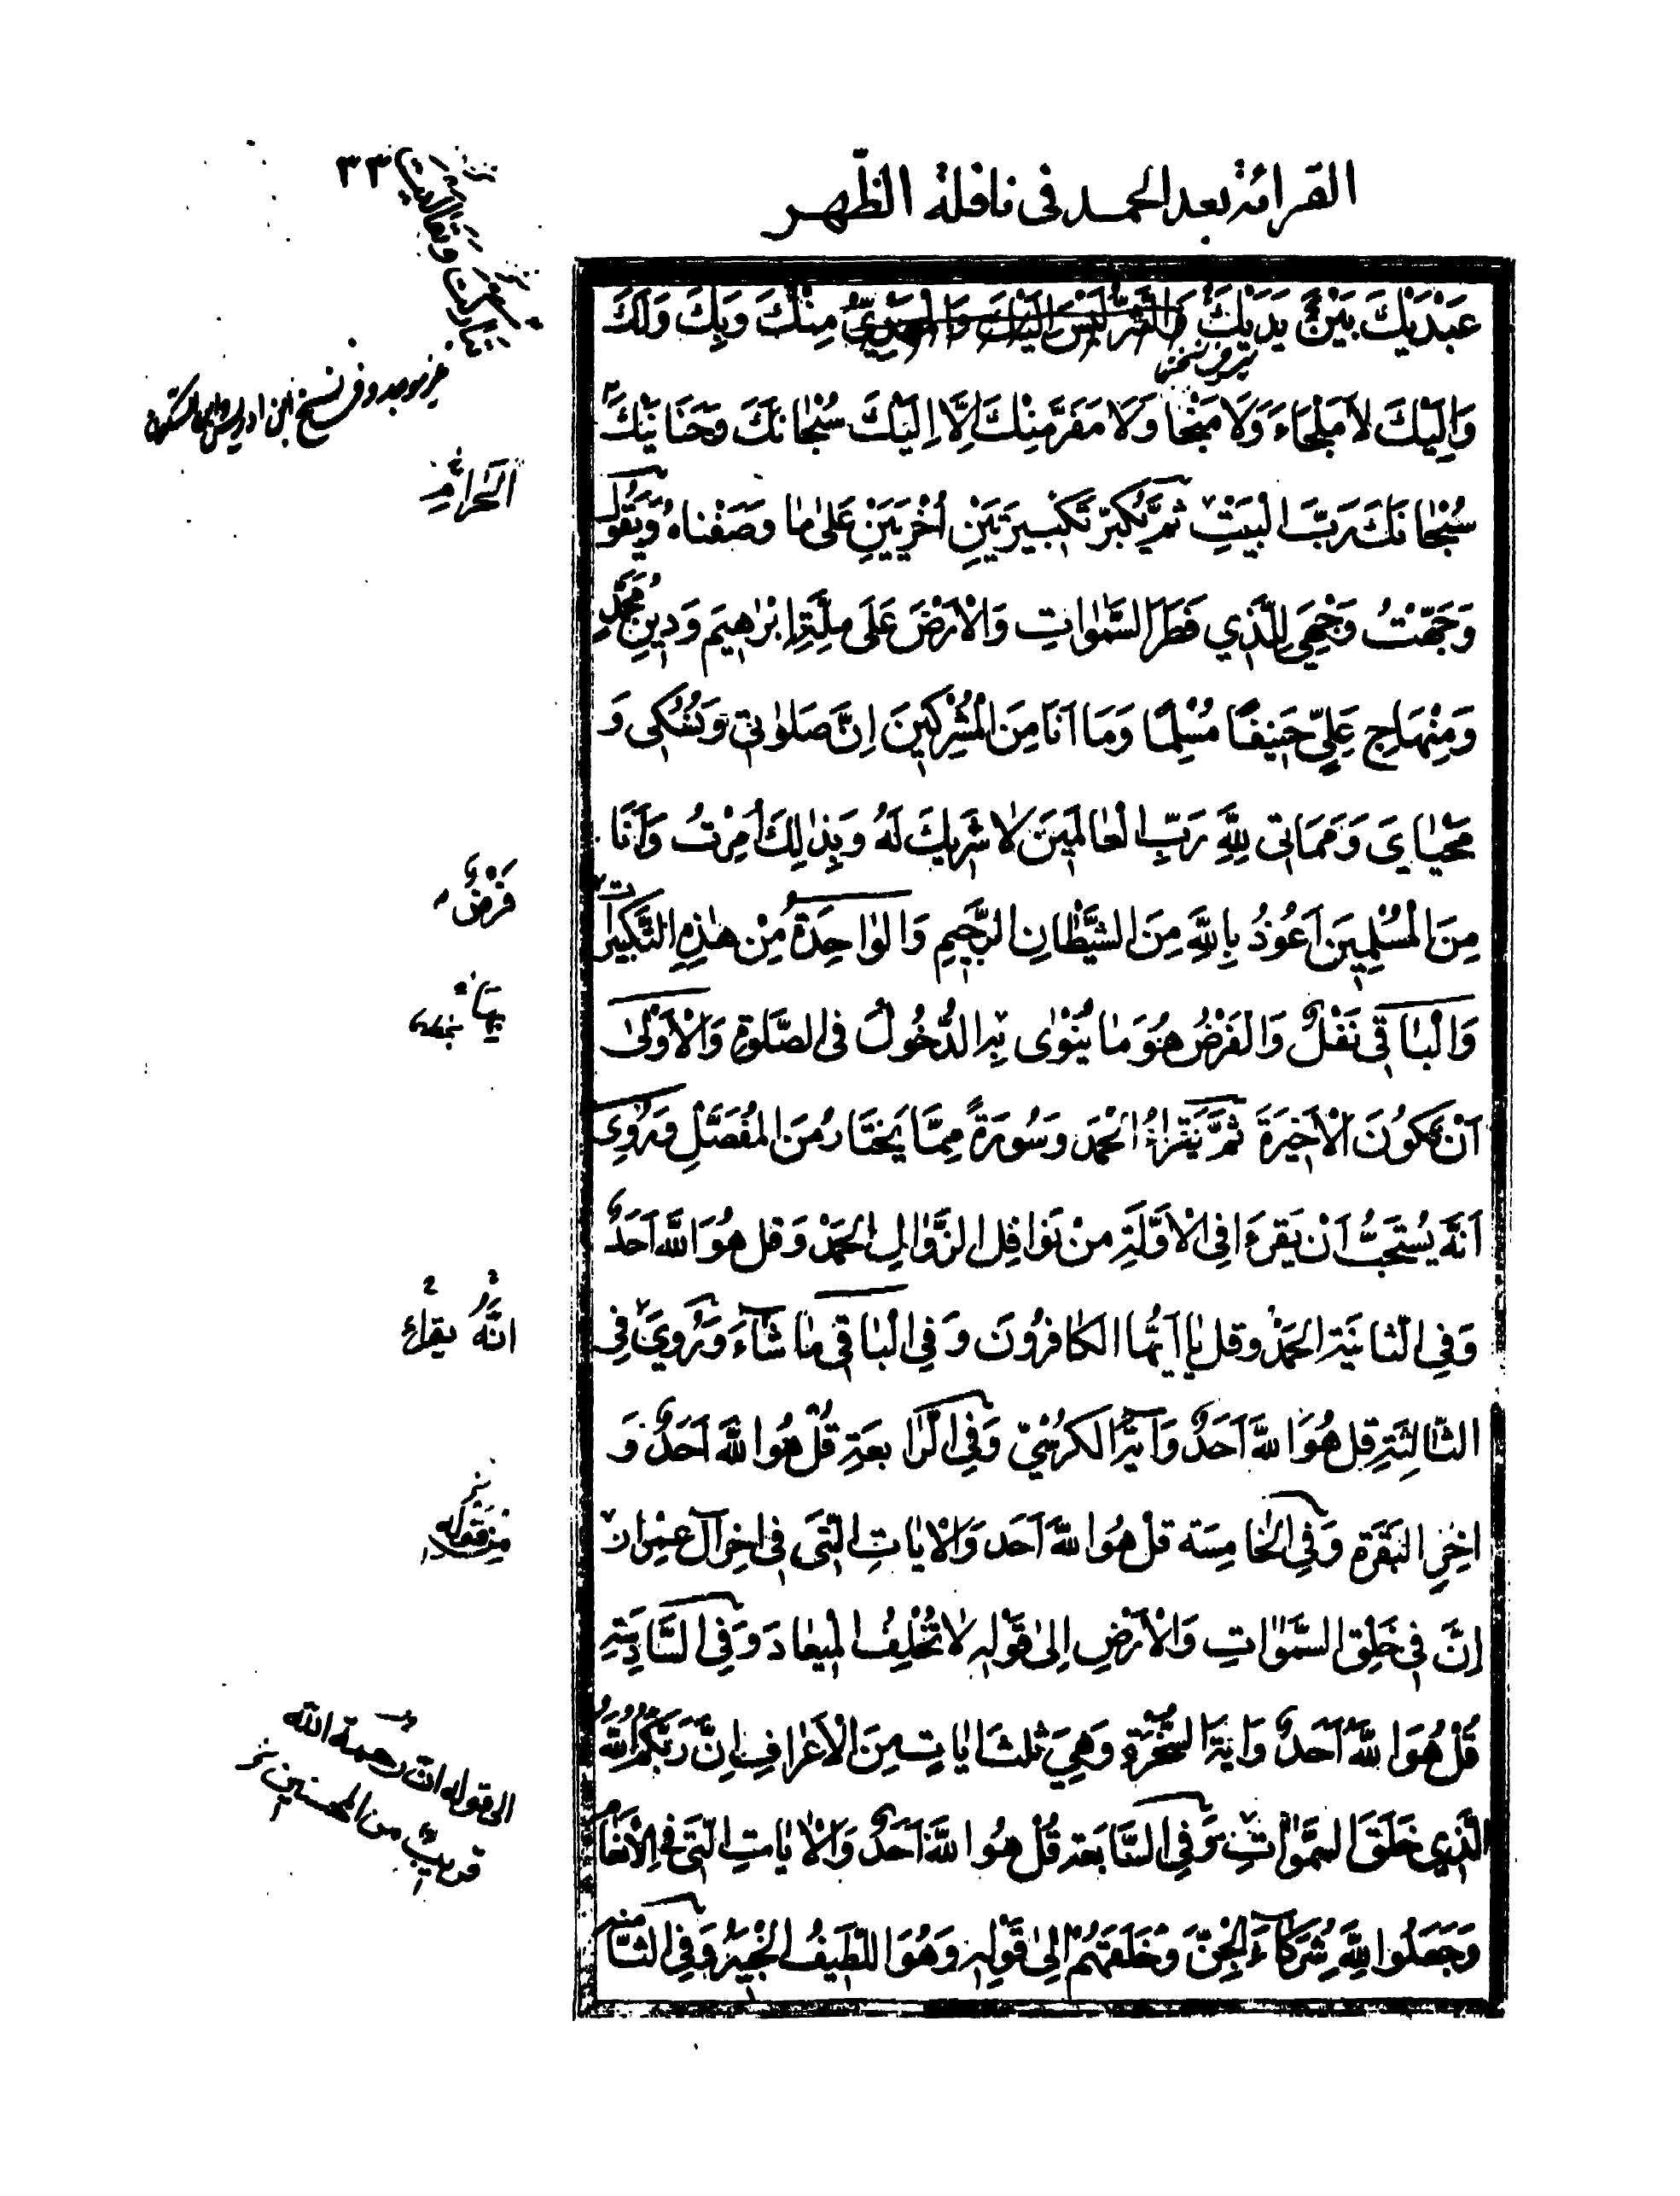 القرائة بعد الحمد فى نافلة الظّهر
٣٣
عَبْدَيْكَ بَيْنَ يَدَيْكَ وَالشَّرُّ لَيْسَ اِلَيْكَ وَالْمَهْدِيُّ مِنْكَ وَبِكَ وَلَكَ
وَاِلَيْكَ لاَ مَلْجَاءَ وَلَا مَنْجَا وَلَا مَفَرَّ مِنْكَ اِلَّا اِلَيْكَ سُبْحَانَكَ وَحَنَانَيْكَ
سُبْحَانَكَ رَبَّ الْبَيْتِ ثُمَّ يُكَبِّرُ تَكْبِيرَتَيْنِ اُخْرَيَيْنِ عَلىٰ مٰا وَصَفْناهُ وَيَقُولُ
وَجَّهْتُ وَجْهِيَ لِلَّذِي فَطَرَ السَّمٰوَاتِ وَالْاَرْضَ عَلَى مِلَّةِ اِبْرٰهِيمَ وَدِينِ مُحَمَّدٍ
وَمِنْهَاجِ عَلِيٍّ حَنِيفًا مُسْلِمًا وَمَا اَنَا مِنَ الْمُشْرِكِينَ اِنَّ صَلوٰتِى وَنُسُكِى وَ
مَحْيٰاىَ وَمَمَاتِى لِلّٰهِ رَبِّ الْعٰالَمِينَ لاٰ شَرِيكَ لَهُ وَبِذٰلِكَ اُمِرْتُ وَاَنَا
مِنَ الْمُسْلِمِينَ اَعُوذُ بِاللّٰهِ مِنَ الشَّيْطَانِ الرَّجِيمِ وَالْوٰاحِدَةُ مِنْ هٰذِهِ التَّكْبِيرَاتِ
فَرْضٌ
وَالْبٰاقِى نَفْلٌ وَالْفَرْضُ هُوَ مٰا يُنَوْٰى بِهِ الدُّخُولُ فِى الصَّلوٰةِ وَالْاَوْلىٰ
اَنْ يَكُونَ الْاَخِيرَةَ ثُمَّ يَقْرَاءُ الْحَمْدَ وَسُورَةً مِمَّا يَخْتَارُ مِنَ الْمُفَصَّلِ وَرُوِىَ
اَنَّهُ يُسْتَحَبُّ اَنْ يَقْرَءَ فِى الْاَوَّلَةِ مِنْ نَوَافِلِ الزَّوٰالِ الْحَمْدَ وَقُل هُوَ اللّٰهُ اَحَدٌ
وَفِى الثّانِيَةِ الْحَمْدَ وقل يٰا اَيُّهَا الْكٰافِرُونَ وَفِى الْبٰاقِى مٰا شَاءَ وَرُوِيَ فِى
انَّهُ يقراء
الثّالِثَةِ قل هُوَ اللّٰهُ اَحَدٌ وَآيَةَ الْكُرْسِيِّ وَفِى الرّٰابِعَةِ قُلْ هُوَ اللّٰهُ اَحَدٌ وَ
اٰخِرِ الْبَقَرَةِ وَفِى الْخَامِسَة قل هُوَ اللّٰهُ اَحَد وَالْاٰيٰاتِ الَّتِى فِى اٰخِرِ آلِ عِمْرانَ
من قوله
اِنَّ فِى خَلْقِ السَّمٰوٰاتِ وَالْاَرْضِ اِلىٰ قَوْلِهِ لاٰ تُخْلِفُ الْمِيعٰادَ وَفِى السَّادِسَةِ
قُلْ هُوَ اللّٰهُ اَحَدٌ وَآيَةَ السُّخْرَةِ وَهِىَ ثلثُ اٰيٰاتٍ مِنَ الْاَعْرٰافِ اِنَّ رَبَّكُمُ اللّٰهُ
الَّذِي خَلَقَ السَّمٰوٰاتِ وَفِى السَّابَعة قُلْ هُوَ اللّٰهُ اَحَدٌ وَالْاٰيٰاتِ الَّتِى فِى الْاَنْعَامِ
الى قوله انّ رحمة الله
قريبٌ من المحسنين
وَجَعَلُوا لِلّٰهِ شُرَكَاءَ الْجِنَّ وَخَلَقَهُمْ اِلىٰ قَوْلِهِ وَهُوَ اللَّطِيفُ الْخَبِيرُ وَفِى الثّامنة